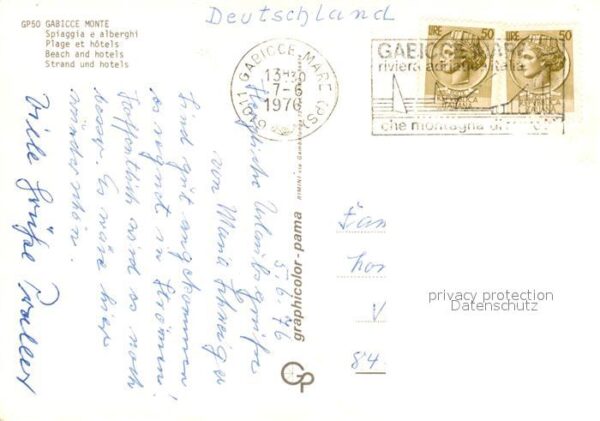 Deutschland
GP50 GABICCE MONTE
Spiaggia e alberghi
Plage et hôtels
Beach and hotels
Strand und hotels
61011 GABICCE-MARE (PS)
13-H30
7-6
1976
LIRE 50
LIRE 50
GABICCE MARE
riviera adriatica italia
che montagna di
Herzliche Urlaubsgrüße
von Maria
5.6.76
Sind gut angekommen
es regnet in Strömen!
Hoffentlich wird es noch
besser. Es wäre hier
wunderschön.
Viele Grüße
graphicolor-pama
RIMINI via Gambalunga
GP
Fam
V
84
privacy protection
Datenschutz